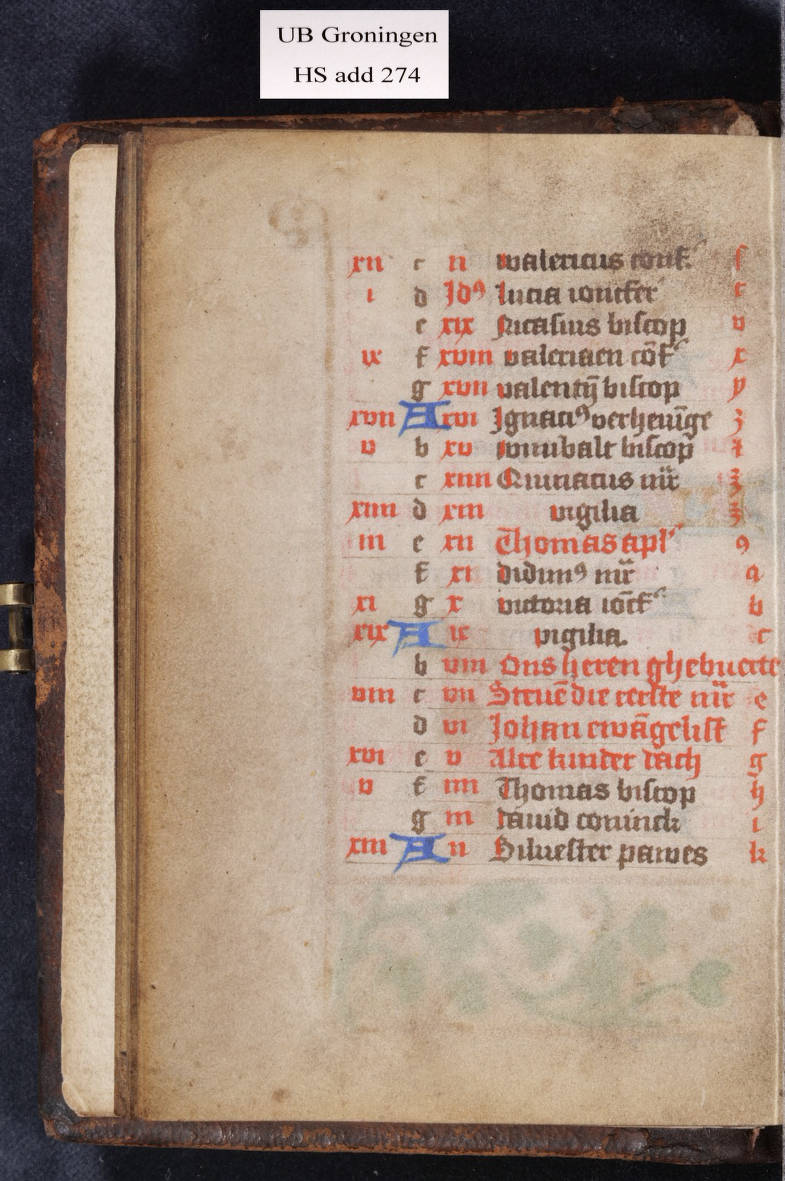 UB Groningen
HS add 274
xii c ii walericus conf. s
i d Idꝰ lucia ioncfer t
e xix Nicasius biscop v
ix f xviii valeriaen cōf x
g xvii valentij biscop y
xvii A xvi Ignaciꝰ verheuīge z
v b xv winibalt biscop
c xiiii mr̄
xiiii d xiii vigilia
iii e xii Thomas apl' 9
f xi didimꝰ mr̄ a
xi g x victoria iōcf b
xix A ix vigilia. c
b viii Ons heren ghebuerte
viii c vii Steuē die eerste mr̄ e
d vi Johan ewāgelist f
xvi e v Alre kinder dach g
v f iiii Thomas biscop h
g iii dauid coninck i
xiii A ii Siluester pawes k